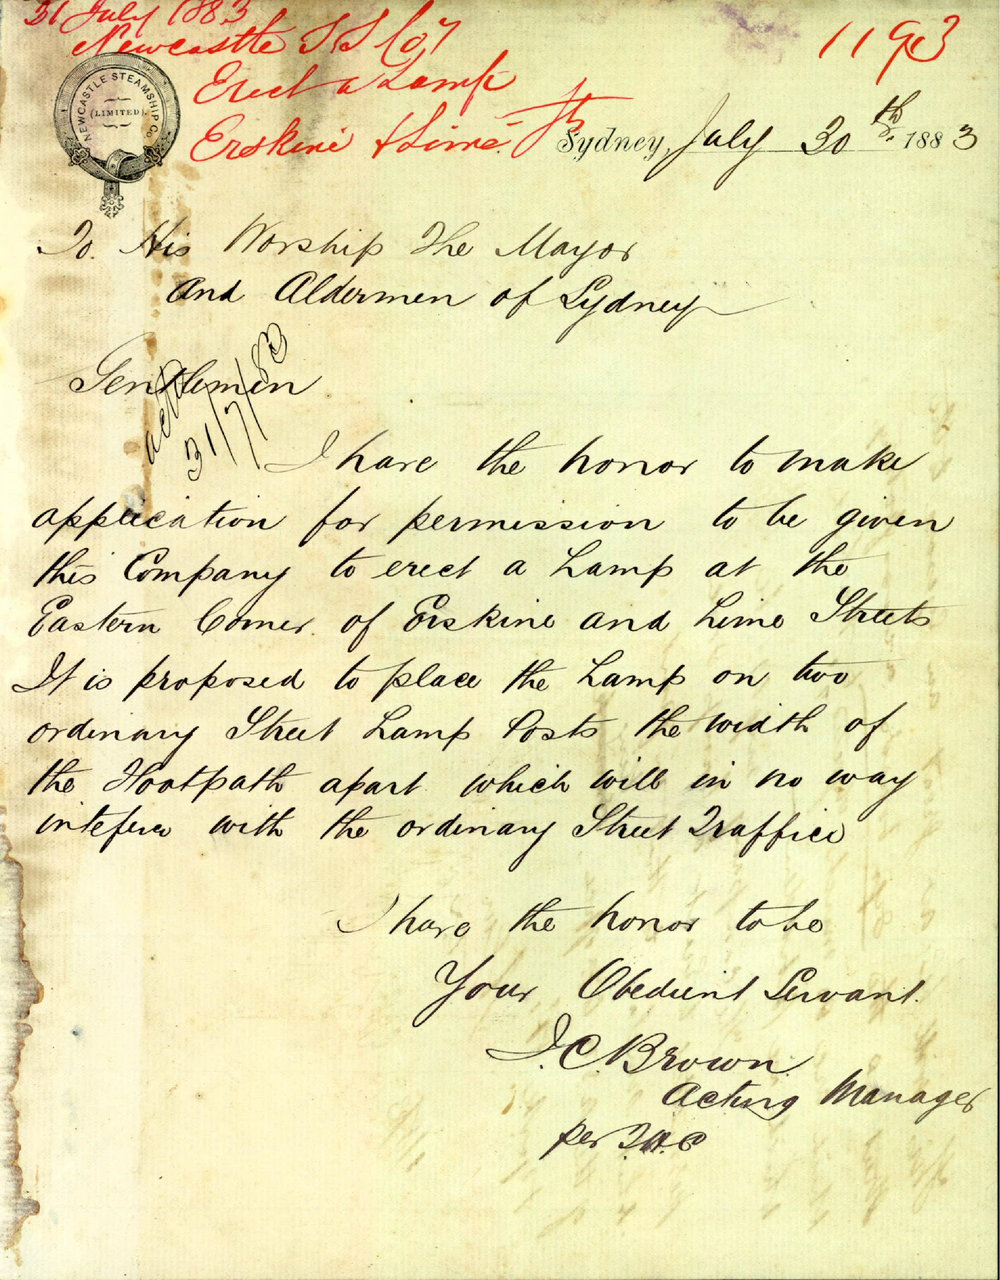 31 July 1883
Newcastle S S Coy
Erect a Lamp
Erskine & Lime Sts
1193
NEWCASTLE STEAMSHIP Co.
(LIMITED)
Sydney, July 30th 1883
To. His Worship The Mayor
And Aldermen of Sydney
Gentlemen
31/7/83
I have the honor to make
application for permission to be given
this Company to erect a Lamp at the
Eastern Corner of Erskine and Lime Streets
It is proposed to place the Lamp on two
ordinary Street Lamp Posts the width of
the Footpath apart which will in no way
intefere with the ordinary Street Traffice
I have the honor to be
Your Obedient Servant.
J. C. Brown
Acting Manager
per